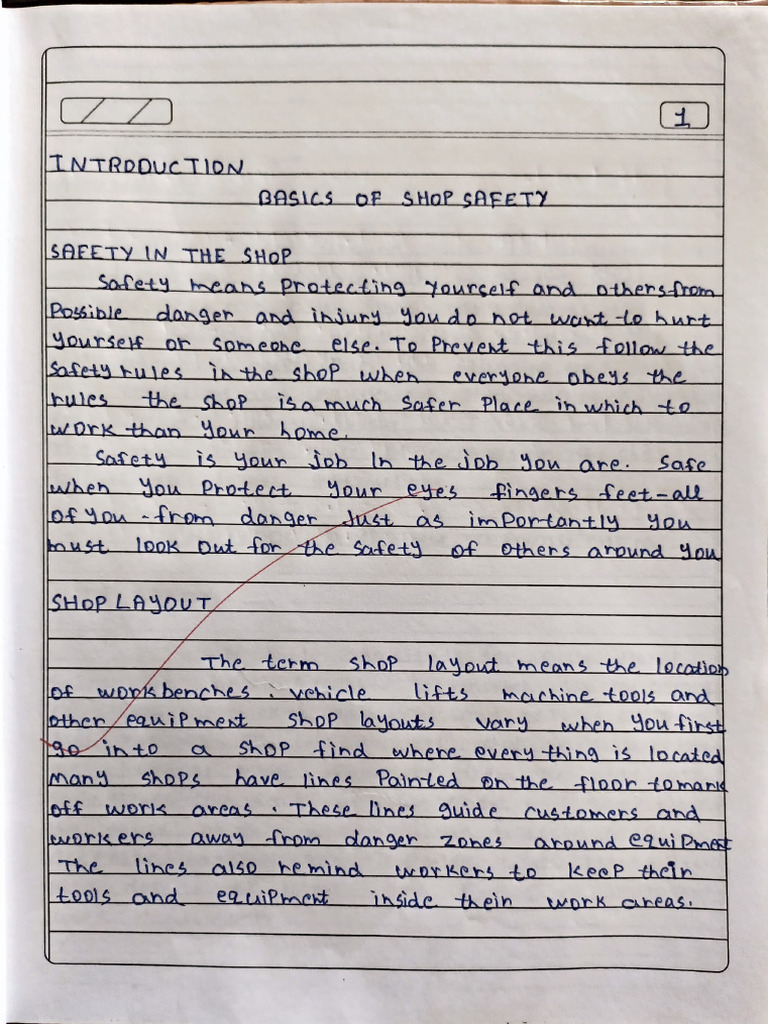 1
INTRODUCTION
BASICS OF SHOP SAFETY
SAFETY IN THE SHOP
Safety means Protecting yourself and others from
Possible danger and injury you do not want to hurt
yourself or someone else. To Prevent this follow the
safety rules in the shop when everyone obeys the
rules the shop is a much Safer Place in which to
work than your home.
Safety is your job In the job you are. Safe
when you Protect your eyes fingers feet-all
of you - from danger Just as importantly you
must look out for the safety of others around you
SHOP LAYOUT
The term shop layout means the location
of workbenches. vehicle lifts machine tools and
other equipment shop layouts vary when you first
go into a shop find where every thing is located
many shops have lines Painted on the floor to mark
off work areas. These lines guide customers and
workers away from danger zones around equipment
The lines also remind workers to keep their
tools and equipment inside their work areas.